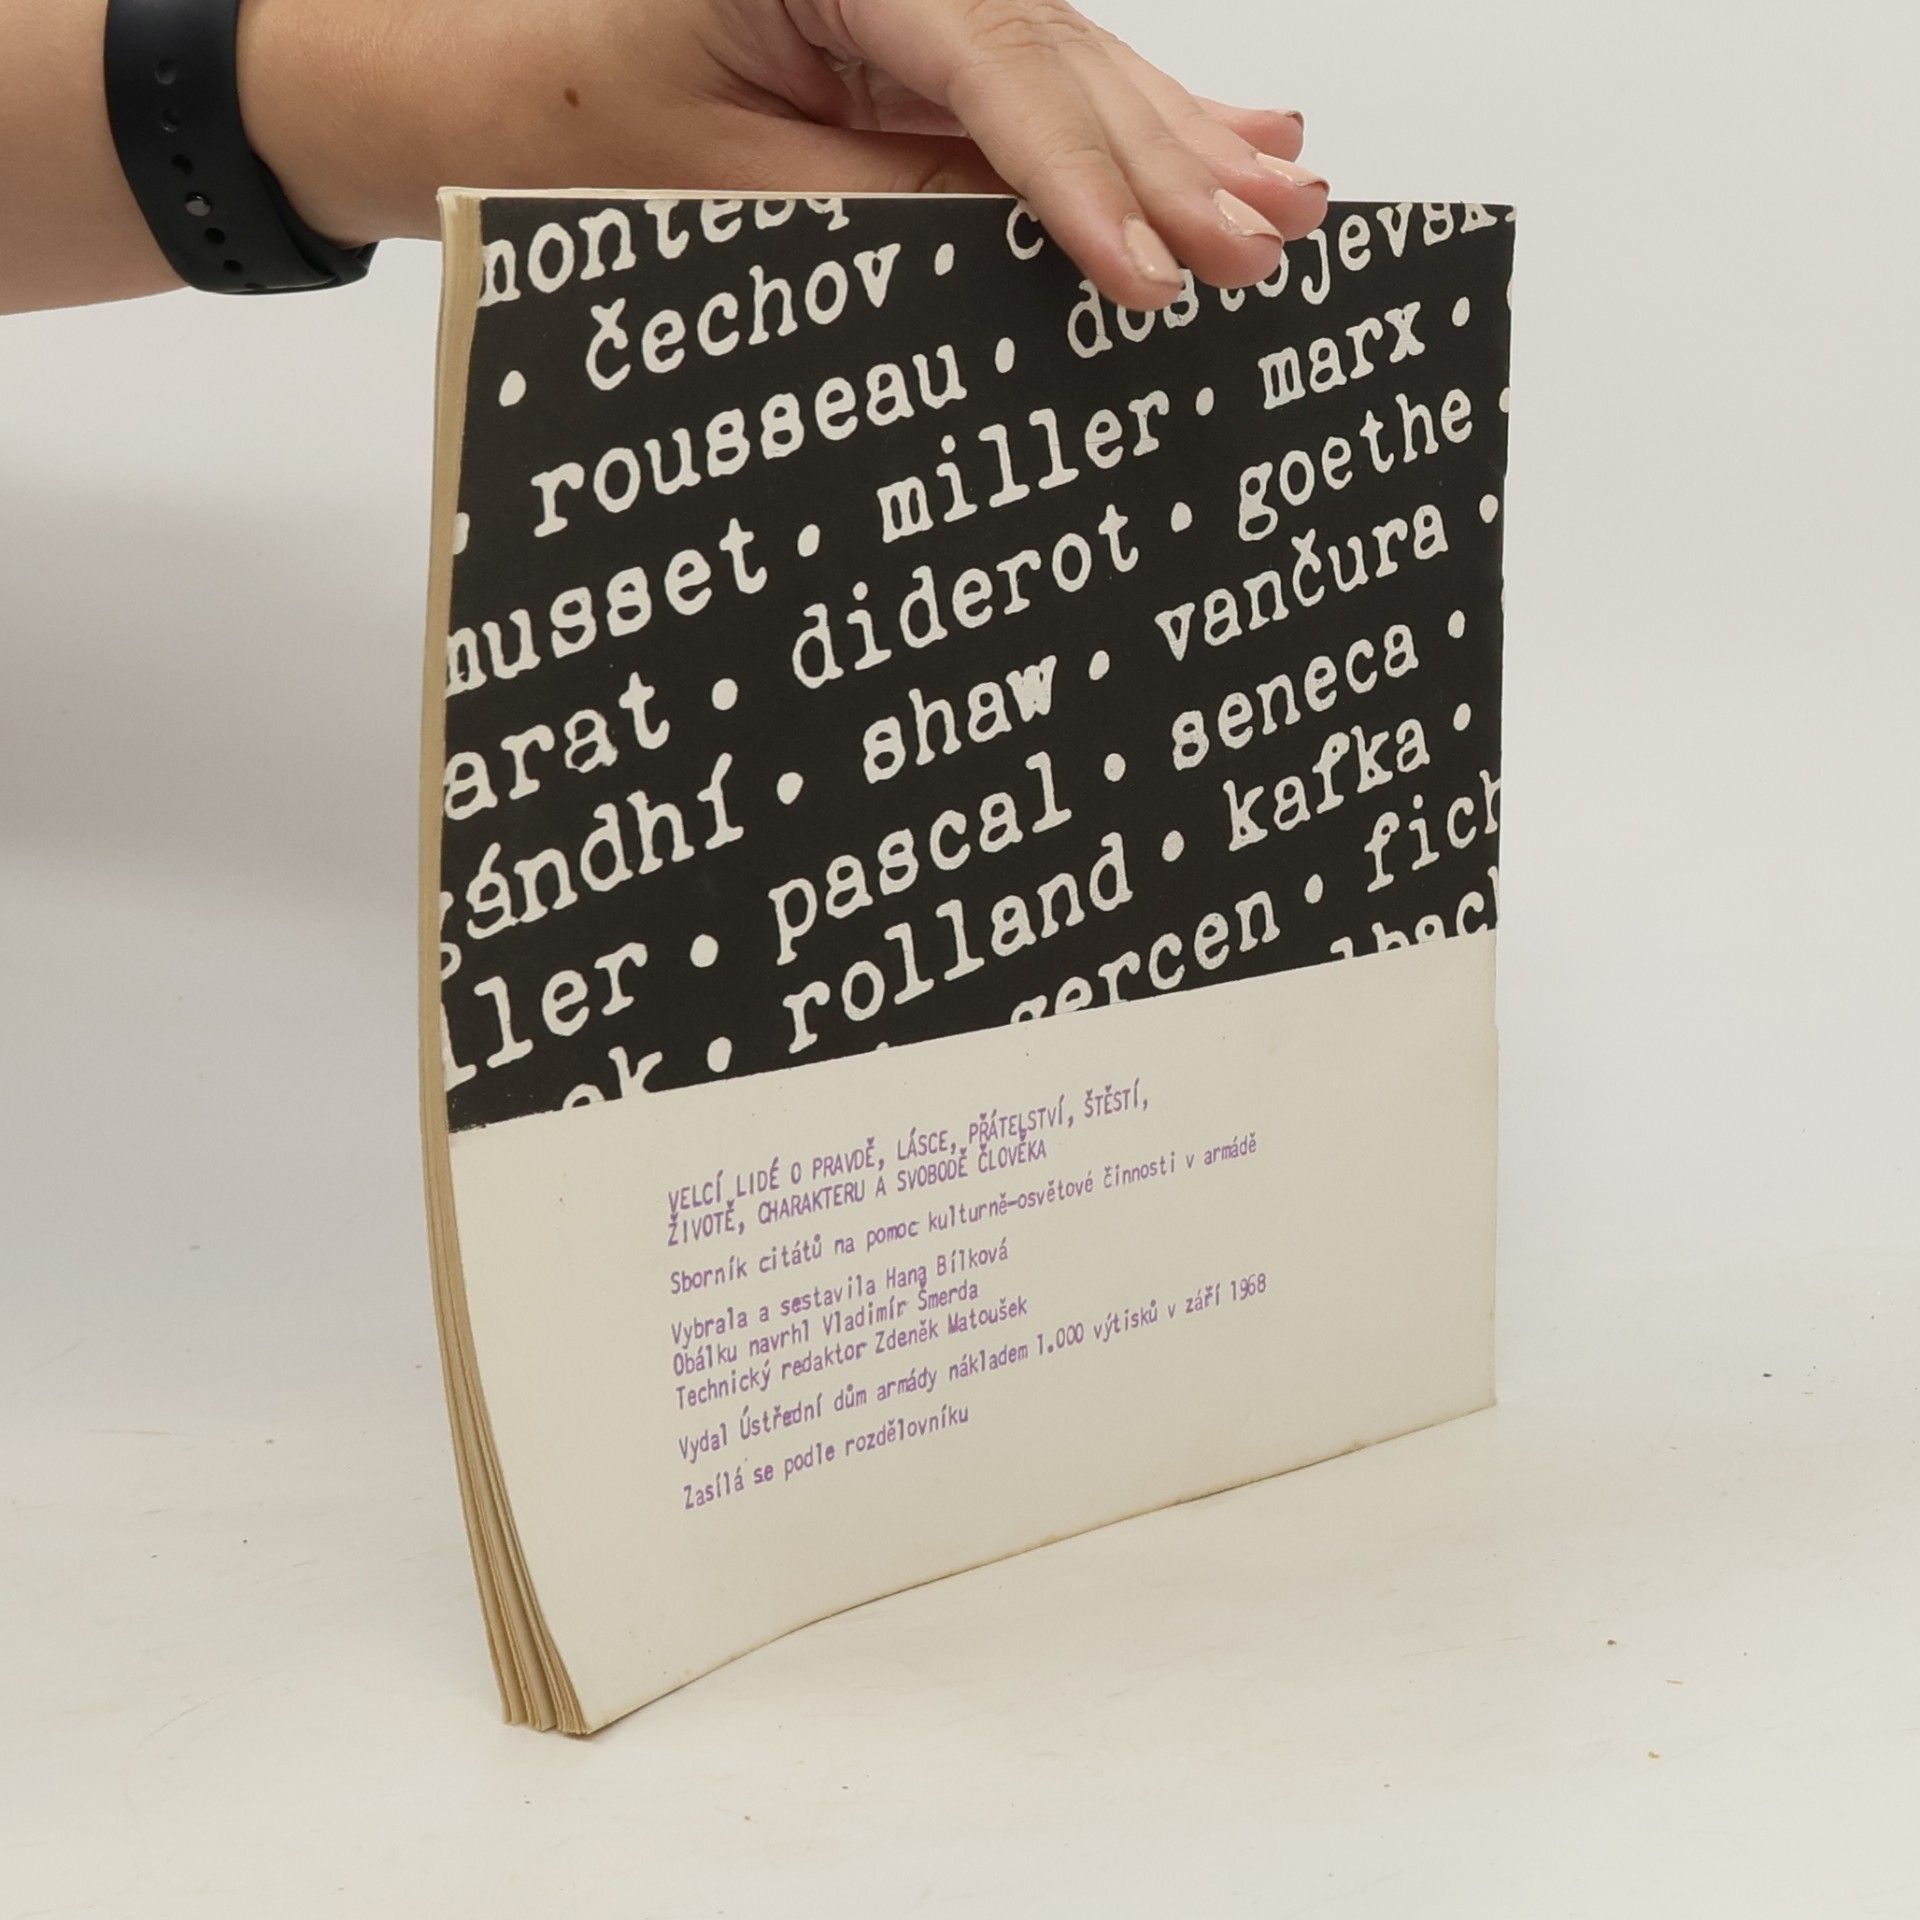 montesq
• čechov •
• rousseau • dostojevsk
musset • miller • marx •
arat • diderot • goethe •
gándhí • shaw • vančura •
ller • pascal • seneca •
ek • rolland • kafka •
gercen • fich
lbach
VELCÍ LIDÉ O PRAVDĚ, LÁSCE, PŘÁTELSTVÍ, ŠTĚSTÍ,
ŽIVOTĚ, CHARAKTERU A SVOBODĚ ČLOVĚKA
Sborník citátů na pomoc kulturně-osvětové činnosti v armádě
Vybrala a sestavila Hana Bílková
Obálku navrhl Vladimír Šmerda
Technický redaktor Zdeněk Matoušek
Vydal Ústřední dům armády nákladem 1.000 výtisků v září 1968
Zasílá se podle rozdělovníku